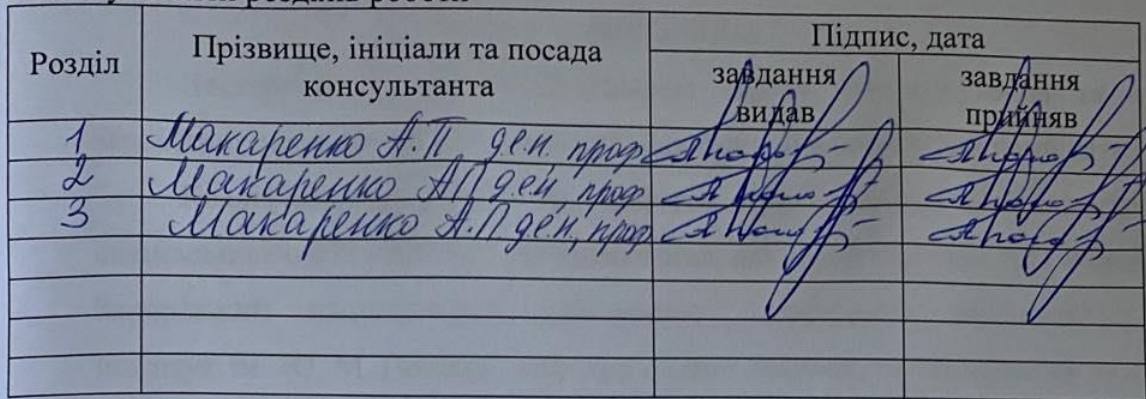 розділів роботи
Розділ
Прізвище, ініціали та посада
консультанта
Підпис, дата
завдання
видав
завдання
прийняв
1 Макаренко А.П. д.е.н. проф
2 Макаренко А.П д.е.н, проф
3 Макаренко А.П д.е.н, проф